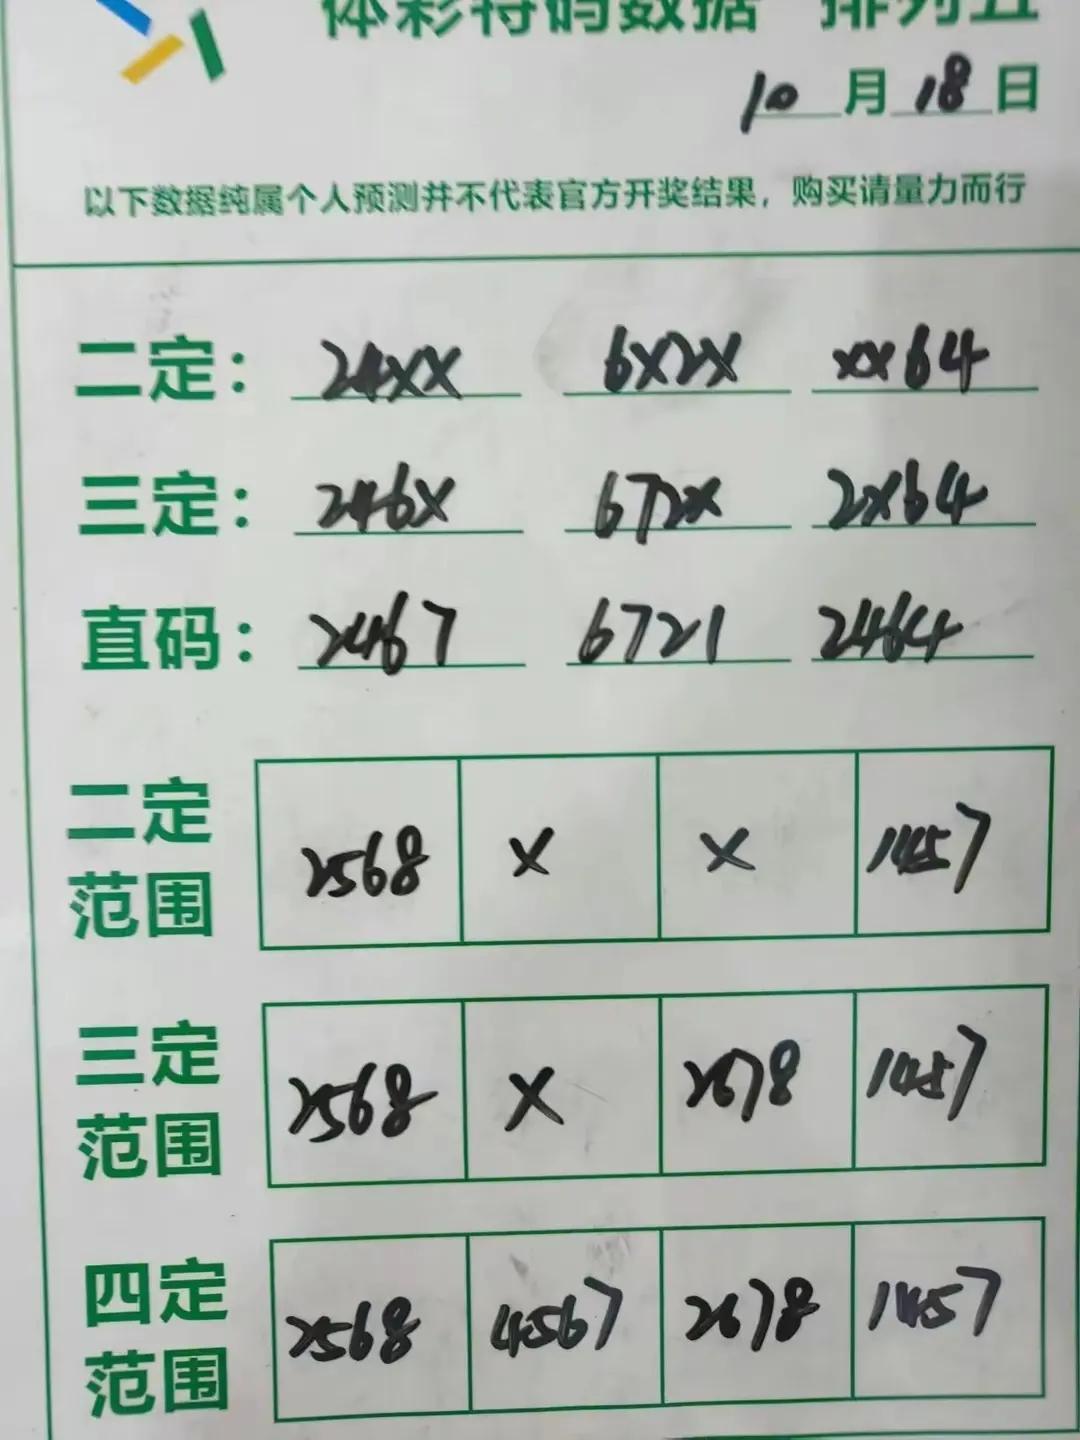 体彩特码数据 排列五
10月18日
以下数据纯属个人预测并不代表官方开奖结果，购买请量力而行
二定： 24XX 6X2X XX64
三定： 246X 672X 2X64
直码： 2467 6721 2464
二定范围 2568 X X 1457
三定范围 2568 X 2678 1457
四定范围 2568 4567 2678 1457